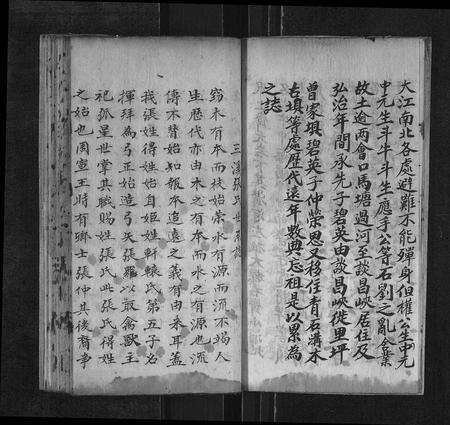 大江南北各處避難不能殫身但權公生中元
中元生斗牛斗生應手公等石劉之亂合業
故土逾兩會口馬塘過河至談昌峽居住及
弘治年間承先子碧英由談昌峽徙里坪
曾家垻碧英子仲榮恩又移住青石溝木
古塡等處歷代遠年數典忘祖是以累為
之誌
三溪張氏世系譜
窃木有本而枝始榮水有源而流不竭人
生歷代亦由木之有本而水之有源也流
傳不替始知報本追遠之義有由來耳蓋
我張姓得姓始自姬姓軒轅氏第五子名
揮拜為弓正始造弓矢張羅以取禽獸主
祀弧星世掌其職賜姓張氏此張氏得姓
之始也周宣王時有卿士張仲其後裔事